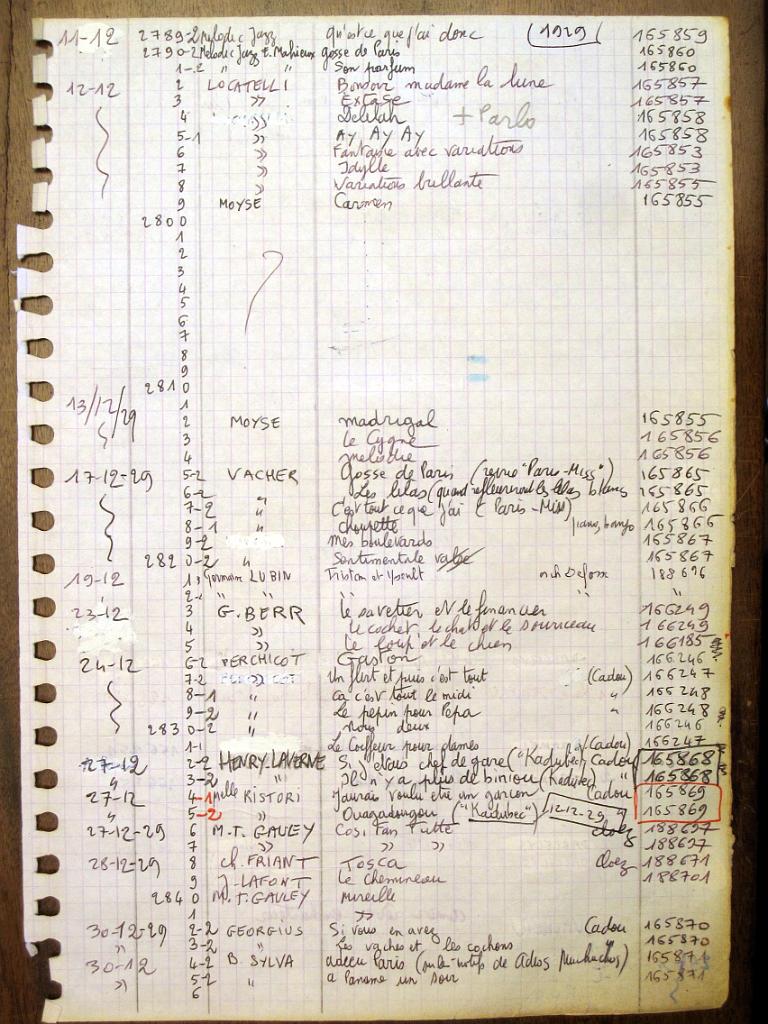 11-12 2789-2 Melodic Jazz qu'est ce que j'ai donc (1929) 165859
2790-2 Melodic Jazz E. Mahieux gosse de Paris 165860
1-2 " " Son parfum 165860
12-12 2 LOCATELLI Bonsoir madame la lune 165857
3 " Extase 165857
4 " Delilah + Parlo 165858
5-1 " Ay Ay Ay 165858
6 " Fantaisie avec variations 165853
7 " Idylle 165853
8 " Variations brillante 165855
9 MOYSE Carmen 165855
2800
1
2
3
4
5
6
7
8
9
?
2810
13/12/29 1
2 MOYSE madrigal 165855
3 le Cygne 165856
4 melodie 165856
17-12-29 5-2 VACHER gosse de Paris (revue "Paris-Miss") 165865
6-2 " Les lilas (quand refleuriront les lilas blancs 165865
7-2 " C'est tout ce que j'ai (Paris-Miss) 165866
8-1 " choupette piano, banjo 165866
9-2 mes boulevards 165867
2820-2 " Sentimentale valse 165867
19-12 1 Germaine LUBIN Tristan et Yseult 188696
2 " " " "
23-12 3 G. BERR le savetier et le financier 166249
4 " le cochet, le chat et le souriceau 166249
5 " le loup et le chien 166185
24-12 6-2 PERCHICOT Gaston 166246
7-2 Un flirt et puis c'est tout (Cadou) 166247
8-1 " ca c'est tout le midi " 166248
9-2 " Le pepin pour Pepa " 166248
2830-2 " Nous deux 166246
1-1 Le Coiffeur pour dames (Cadou) 166247
27-12 2-2 HENRY LAVERNE Si j'étais chef de gare ("Kadubec) Cadou 165868
" 3-2 " Il n'y a plus de biniou (Kadubec) " 165868
27-12 4-1 Melle RISTORI J'aurais voulu etre un garcon Cadou 165869
" 5-2 Ouagadougou ("Kadubec") 12-12-29 " 165869
27-12-29 6 M.T. GAULEY Cosi Fan Tutte cloez 188697
7 " " " 188697
28-12-29 8 ch. FRIANT Tosca cloez 188671
9 J. LAFONT Le chemineau 188701
2840 M.T. GAULEY Mireille
1 "
30-12-29 2-2 GEORGIUS Si vous en avez Cadou 165870
" 3-2 " Les vaches et les cochons 165870
30-12 4-2 B. SYLVA adieu Paris (sur les motifs de Adios Muchachos) 165871
" 5-2 " a Paname un soir 165871
6